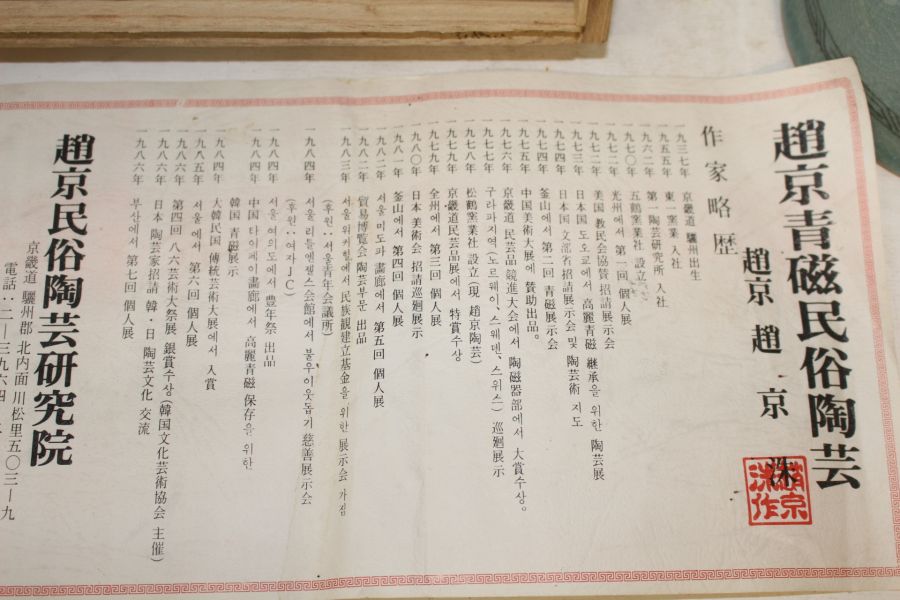 趙京青磁民俗陶芸
趙京 趙 京 洙
作家略歴
一九三七年 京畿道 驪州出生
一九五五年 東一窯業 入社
一九六二年 第一陶芸研究所 入社
一九七〇年 五鶴窯業社 設立
一九七二年 光州에서 第一回 個人展
一九七二年 美国教民会協賛招請展示会
一九七三年 日本国 도오쿄에서 高麗青磁 継承을 위한 陶芸展
一九七四年 日本国 文部省 招請展示会 및 陶芸術 지도
一九七四年 釜山에서 第二回 青磁展示会
一九七五年 中国美術大展에 賛助出品。
一九七六年 京畿道 民芸品 競進大会에서 陶磁器部에서 大賞수상。
一九七七年 구라파지역(노르웨이、스웨덴、스위스) 巡廻展示
一九七九年 松鶴窯業社 設立(現 趙京陶芸)
一九七九年 京畿道民芸品展에서 特賞수상
一九七九年 全州에서 第三回 個人展
一九八〇年 日本 美術会 招請 巡廻展示
一九八一年 釜山에서 第四回 個人展
一九八二年 서울 미도파 画廊에서 第五回 個人展
一九八二年 貿易博覧会 陶芸부문 出品
一九八三年 서울 워커힐에서 民族観建立基金을 위한 展示会 가짐
(후원:서울青年会議所)
一九八四年 서울 리틀엔젤스会館에서 불우이웃돕기 慈善展示会
(후원:여자JC)
一九八四年 서울 여의도에서 豊年祭 出品
一九八四年 中国 타이페이画廊에서 高麗青磁 保存을 위한
韓国 青磁展示
一九八四年 大韓民国 傳統芸術大展에서 入賞
一九八五年 서울에서 第六回 個人展
一九八六年 第四回 八六芸術大祭展 銀賞수상(韓国文化芸術協会 主催)
一九八六年 日本 陶芸家招請 韓・日 陶芸文化 交流
一九八六年 부산에서 第七回 個人展
趙京民俗陶芸研究院
京畿道 驪州郡 北内面 川松里五〇三ー九
電話:二ー三九六四